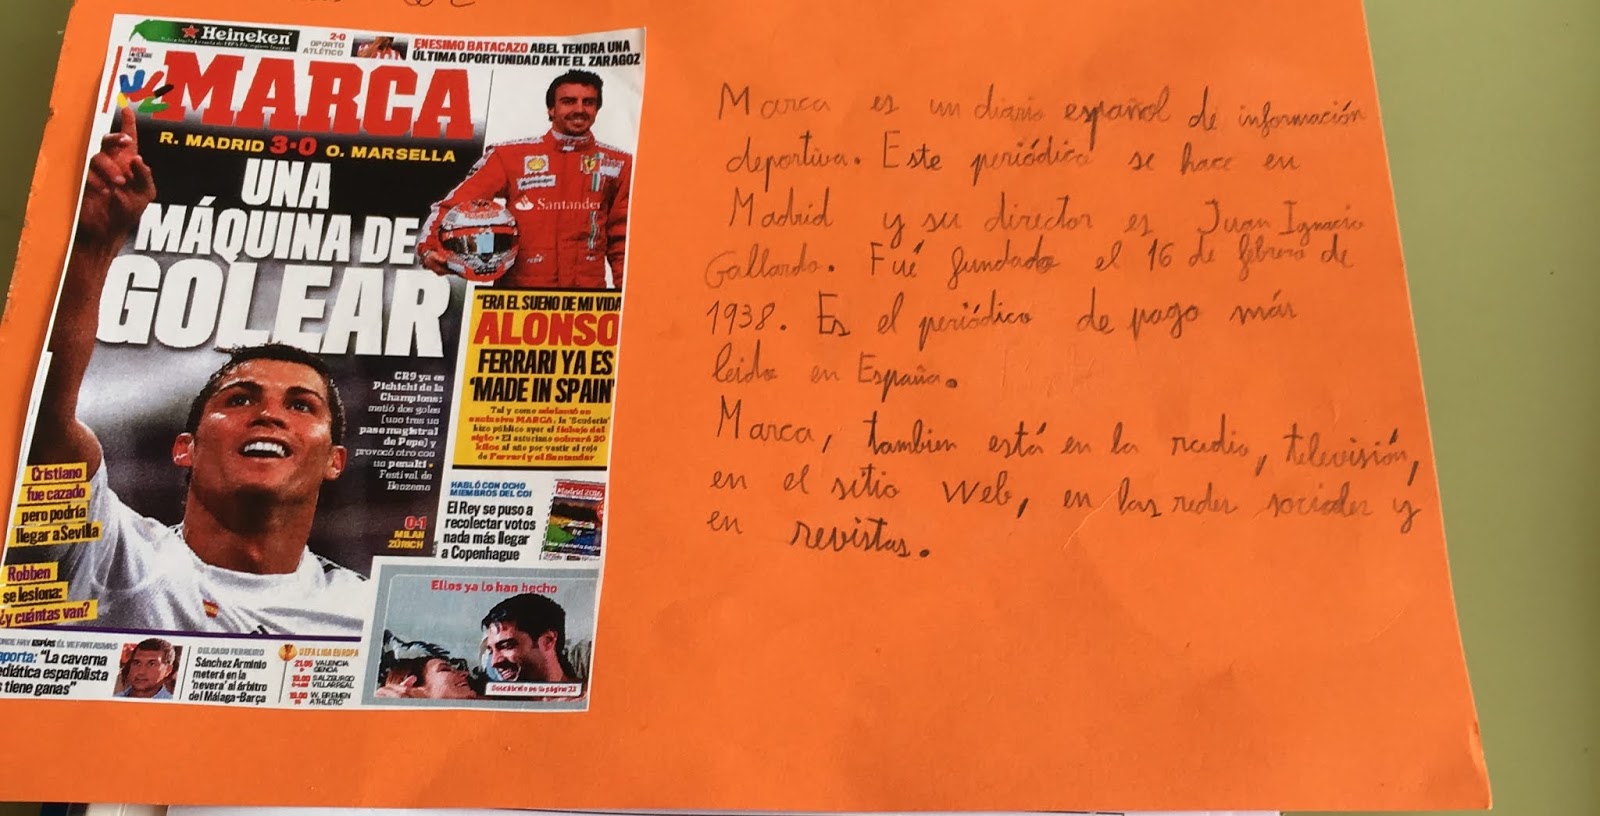 Heineken
2-0
OPORTO
ATLÉTICO
ENESIMO BATACAZO ABEL TENDRA UNA
ÚLTIMA OPORTUNIDAD ANTE EL ZARAGOZ
MARCA
R. MADRID 3-0 O. MARSELLA
UNA
MÁQUINA DE
GOLEAR
Santander
"ERA EL SUEÑO DE MI VIDA
ALONSO
FERRARI YA ES
'MADE IN SPAIN'
Tal y como adelantó en
exclusiva MARCA, la 'Scuderia'
hizo público ayer el fichaje del
siglo • El asturiano cobrará 20
kilos al año por vestir el rojo
de Ferrari y el Santander
CR9 ya es
Pichichi de la
Champions:
metió dos goles
(uno tras un
pase magistral
de Pepe) y
provocó otro con
un penalti •
Festival de
Benzema
Cristiano
fue cazado
pero podría
llegar a Sevilla
0-1
MILAN
ZÚRICH
Robben
se lesiona:
¿y cuántas van?
HABLÓ CON OCHO
MIEMBROS DEL COI
El Rey se puso a
recolectar votos
nada más llegar
a Copenhague
Madrid 2016
Ellos ya lo han hecho
aporta: "La caverna
ediática españolista
s tiene ganas"
DELGADO FERREIRO
Sánchez Arminio
meterá en la
'nevera' al árbitro
del Málaga-Barça
UEFA LIGA EUROPA
21.05 VALENCIA
GENOA
19.00 SALZBURGO
VILLARREAL
19.00 W. BREMEN
ATHLETIC
Marca es un diario español de información
deportiva. Este periódico se hace en
Madrid y su director es Juan Ignacio
Gallardo. Fué fundado el 16 de febrero de
1938. Es el periódico de pago más
leido en España.
Marca, tambien está en la radio, televisión,
en el sitio web, en las redes sociales y
en revistas.